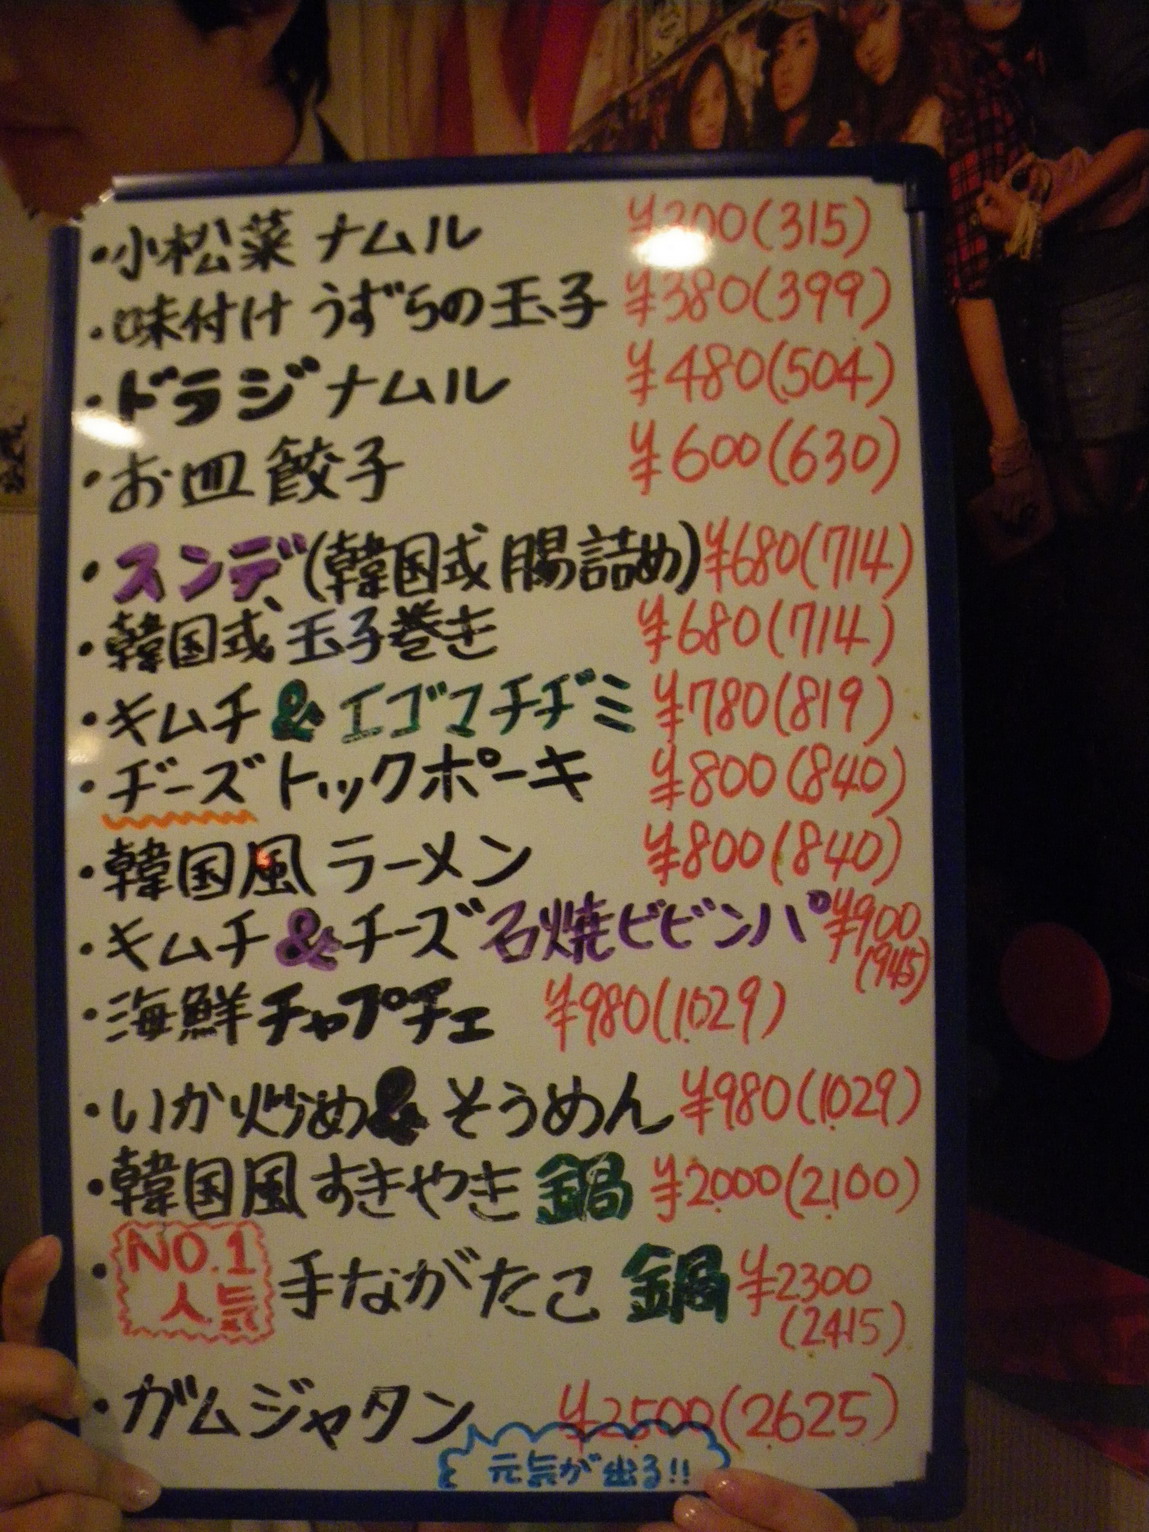 ・小松菜 ナムル ¥300(315)
・味付け うずらの玉子 ¥380(399)
・ドラジ ナムル ¥480(504)
・お皿 餃子 ¥600(630)
・スンデ(韓国式 腸詰め) ¥680(714)
・韓国式 玉子巻き ¥680(714)
・キムチ & エゴマチヂミ ¥780(819)
・チーズ トックポーキ ¥800(840)
・韓国風 ラーメン ¥800(840)
・キムチ&チーズ 石焼ビビンパ ¥900
(945)
・海鮮 チャプチェ ¥980(1029)
・いか炒め & そうめん ¥980(1029)
・韓国風 すきやき 鍋 ¥2000(2100)
・NO.1
人気
手ながたこ 鍋 ¥2300
(2415)
・ガムジャタン ¥2500(2625)
元気が出る!!